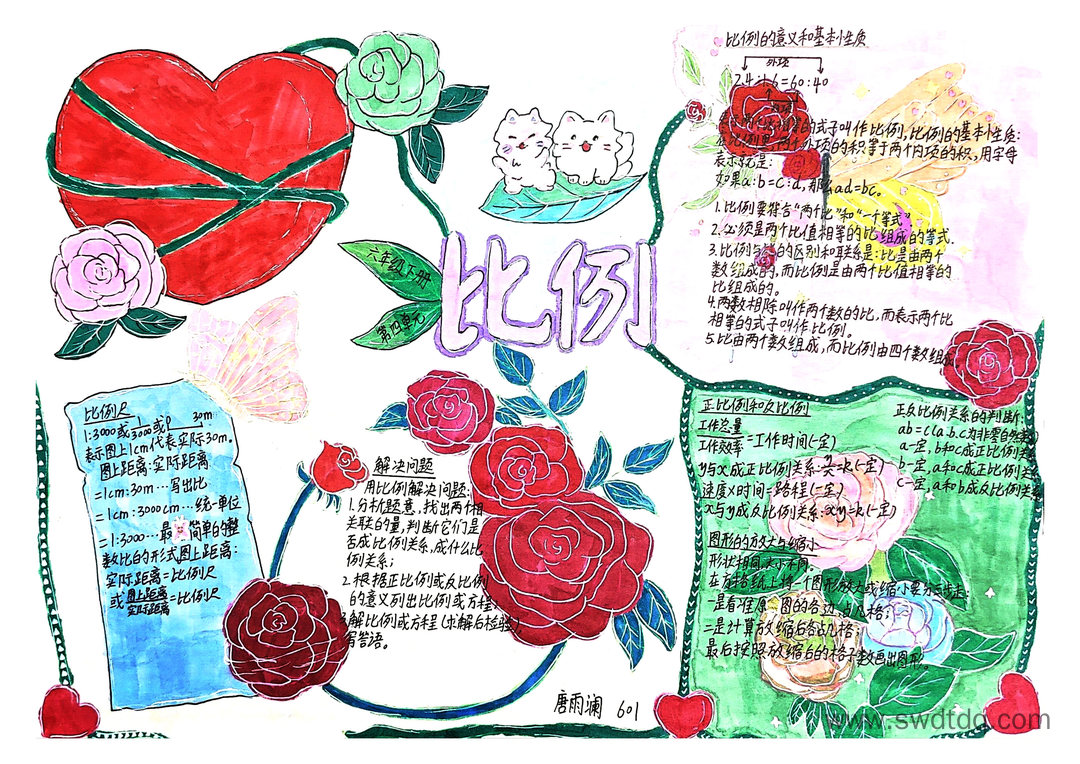 比例的意义和基本性质
外项
2.4:1.6=60:40
内项
表示两个比相等的式子叫作比例,比例的基本性质:
在比例里,两个外项的积等于两个内项的积,用字母
表示就是:
如果a:b=c:d,那么ad=bc。
1.比例要符合“两个比”和“一个等式”
2.必须是两个比值相等的比组成的等式.
3.比例与比的区别和联系是:比是由两个
数组成的,而比例是由两个比值相等的
比组成的。
4.两数相除叫作两个数的比,而表示两个比
相等的式子叫作比例。
5.比由两个数组成,而比例由四个数组成,
六年级下册
第四单元
比例
比例尺
1:3000或1/3000或0 30m
表示图上1cm代表实际30m。
图上距离:实际距离
=1cm:30m…写出比
=1cm:3000cm…统一单位
=1:3000…最简单的整
数比的形式图上距离:
实际距离=比例尺
或图上距离/实际距离=比例尺
解决问题
用比例解决问题:
1.分析题意,找出两个相
关联的量,判断它们是
否成比例关系,成什么比
例关系;
2.根据正比例或反比例
的意义列出比例或方程;
3.解比例或方程(求解后检验)
写答语。
正比例和反比例
工作总量/工作效率=工作时间(一定)
y与x成正比例关系:y/x=k(一定)
速度×时间=路程(一定)
x与y成反比例关系:xy=k(一定)
正反比例关系的判断:
ab=c(a.b.c为非零自然数)
a一定,b和c成正比例关系
b一定,a和c成正比例关系
c一定,a和b成反比例关系
图形的放大与缩小
形状相同,大小不同,
在方格纸上将一个图形放大或缩小要分三步走
一是看:住原图的各边占几格;
二是计算放缩后各占几格;
最后按照放缩后的格子数画出图形。
唐雨澜 601
www.swdtdq.com